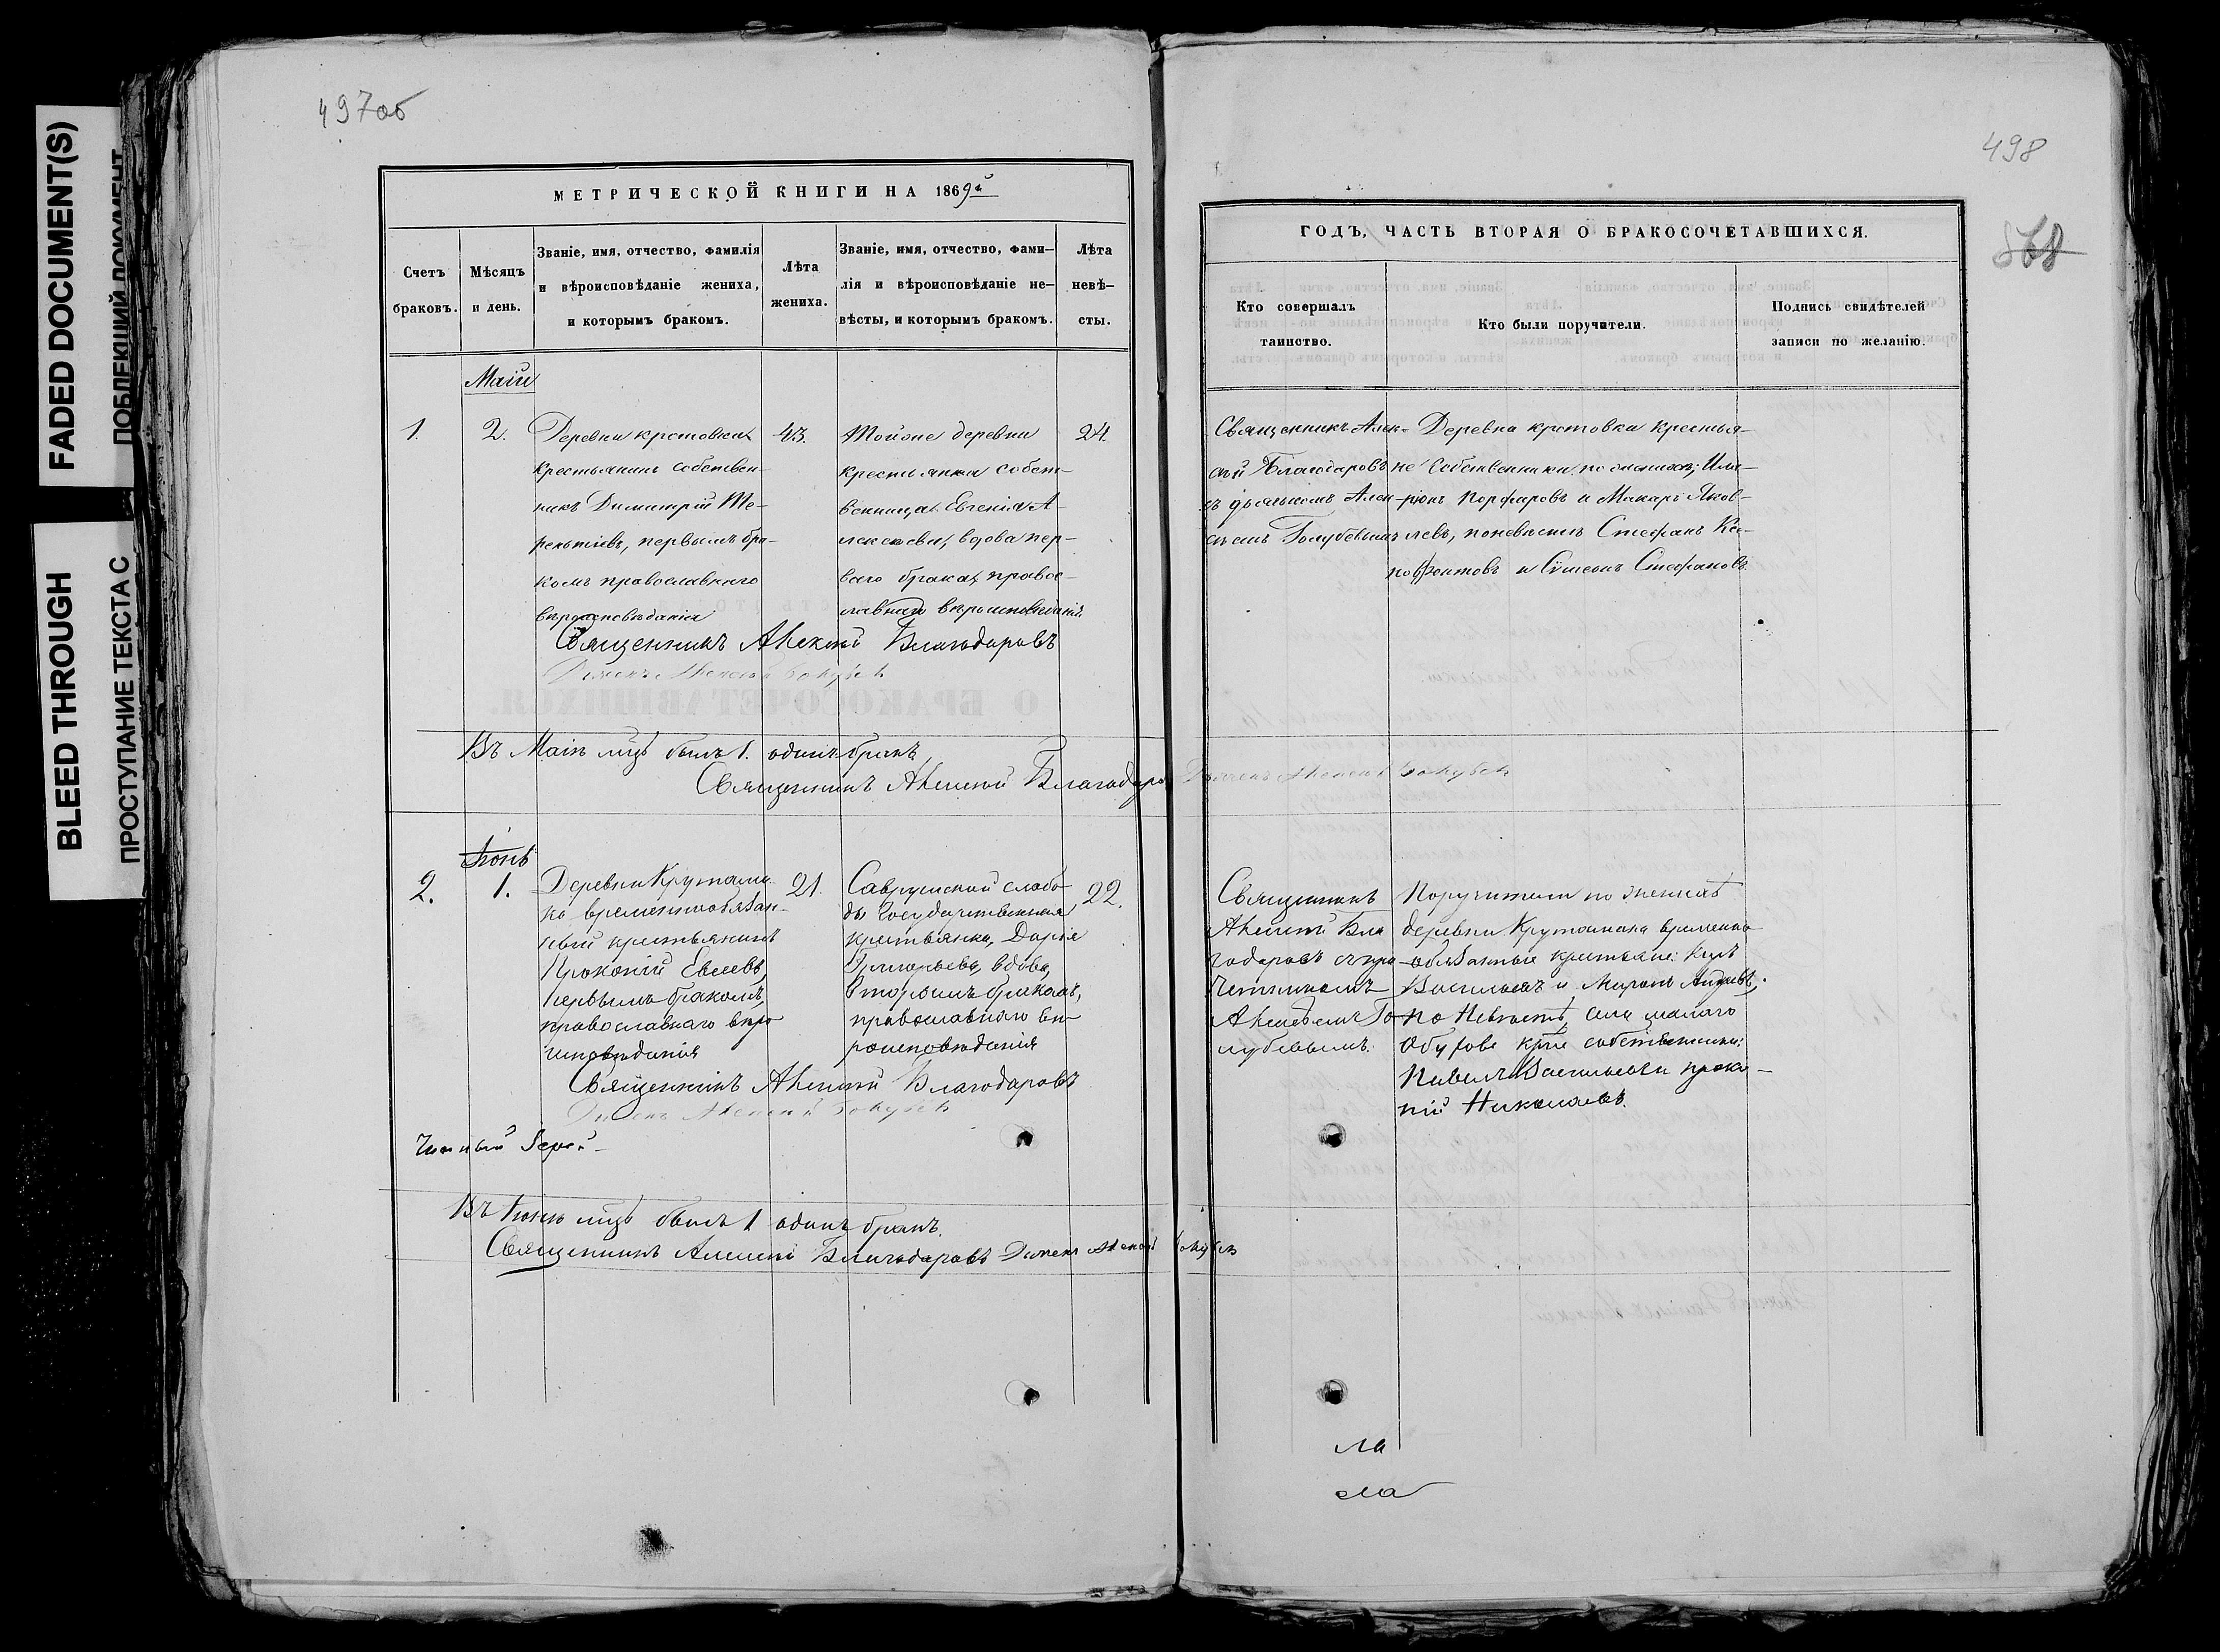 FADED DOCUMENT(S)
BLEED THROUGH
ПРОСТУПАНИЕ ТЕКСТА С
497об
МЕТРИЧЕСКОЙ КНИГИ НА 1869й
Счетъ
браковъ.
Мѣсяцъ
и день.
Званіе, имя, отчество, фамилія
и вѣроисповѣданіе жениха,
и которымъ бракомъ.
Лѣта
жениха.
Званіе, имя, отчество, фами—
лія и вѣроисповѣданіе не—
вѣсты, и которымъ бракомъ.
Лѣта
невѣ—
сты.
Маій
1.
2.
Деревни Кротовки
крестьянинъ собствен-
никъ Димитрій Те-
рентіевъ, первымъ бра-
комъ православнаго
вѣроисповѣданія
43.
Тойоже деревни
крестьянка собст-
венница Евгенія А-
лексѣева, вдова пер-
ваго брака, правос-
лавнаго вѣроисповѣданія.
24.
Священникъ Алексій Благодаровъ
Въ Маіѣ мцѣ былъ 1. одинъ бракъ
Священникъ Алексій Благодаро
Іюнь
2.
1.
Деревни Крутома-
ка временнообязан-
ный крестьянинъ
Прокопій Евсеевъ,
первымъ бракомъ,
православнаго вѣро
исповѣданія
21.
Саврушской слобо
ды Государственная
крестьянка, Дарія
Григорьева, вдова,
вторымъ бракомъ,
православнаго вѣ-
роисповѣданія
22.
Священникъ Алексій Благодаровъ
Въ Іюнѣ мцѣ былъ 1 одинъ бракъ.
Священникъ Алексій Благодаровъ
498
568
ГОДЪ, ЧАСТЬ ВТОРАЯ О БРАКОСОЧЕТАВШИХСЯ.
Кто совершалъ
таинство.
Кто были поручители.
Подпись свидѣтелей
записи по желанію.
Священникъ Алек-
сѣй Благодаровъ
съ дьячкомъ Алек-
сѣемъ Голубевымъ
Деревни Кротовки крестья-
не собственники по женихѣ; Ила-
ріонъ Порфировъ и Макаръ Яков-
левъ, по невѣстѣ Стефанъ Ксе-
нофонтовъ и Сѵмеонъ Стефановъ.
Священникъ
Алексій Бла
годаровъ съ при-
четникомъ
Алексѣемъ Го-
лубевымъ.
Поручители по женихѣ
деревни Крутомака временно
обязанные крестьяне:
Васильевъ и Миронъ Андреевъ;
по невѣстѣ, села малаго
кр҃не собственники:
Павелъ Васильевъ и Проко-
пій Николаевъ.
ла
ла